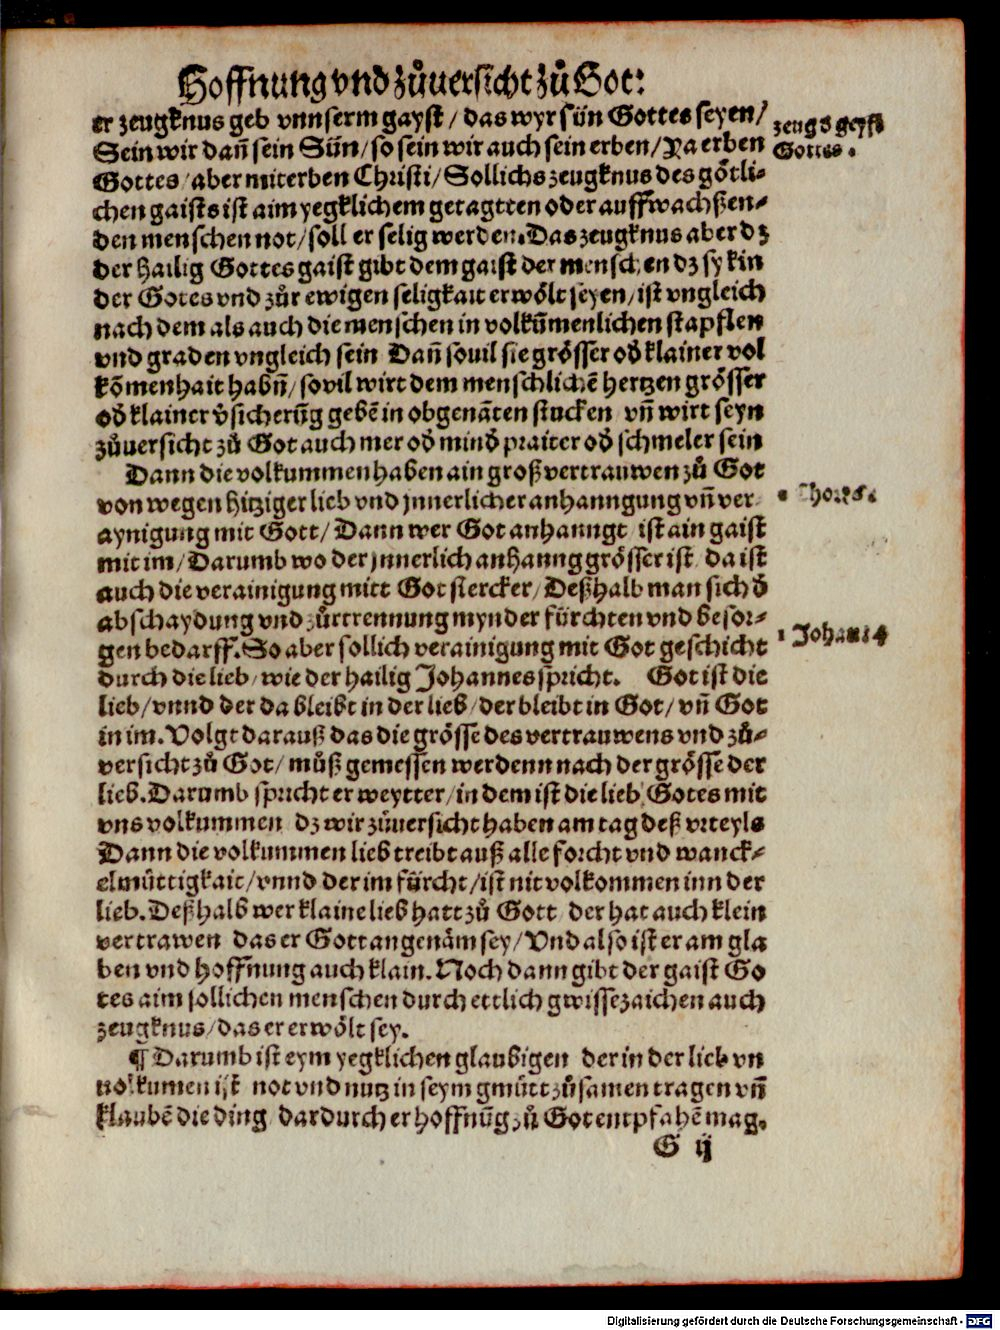 Hoffnung vnd zůuersicht zů Got:
er zeugknus geb vnnserm gayst / das wyr sün Gottes seyen /
zeug d geyst
Sein wir dañ sein Sün / so sein wir auch sein erben / Ya erben
Gottes.
Gottes / aber miterben Christi / Sollichs zeugknus des götli-
chen gaists ist aim yegklichem getagtten oder auffwachßen-
den menschen not / soll er selig werden. Das zeugknus aber dz
der hailig Gottes gaist gibt dem gaist der menschen dz sy kin
der Gotes vnd zůr ewigen seligkait erwölt seyen / ist vngleich
nach dem als auch die menschen in volkūmenlichen stapflen
vnd graden vngleich sein Dañ souil sie grösser od̕ klainer vol
kōmenhait habñ / sovil wirt dem menschlichē hertzen grösser
od̕ klainer v̕sicherūg gebē in obgenāten stucken vñ wirt seyn
zůuersicht zů Got auch mer od̕ mind̕ praiter od̕ schmeler sein
Dann die volkummen haben ain groß vertrauwen zů Got
von wegen hitziger lieb vnd jnnerlicher anhanngung vñ ver
aynigung mit Gott / Dann wer Got anhanngt ist ain gaist
mit im / Darumb wo der jnnerlich anhanng grösser ist da ist
auch die verainigung mitt Got stercker / Deßhalb man sich d̕
abschaydung vnd zůrtrennung mynder fürchten vnd besor-
gen bedarff. So aber sollich verainigung mit Got geschicht
Johan: 4
durch die lieb / wie der hailig Johannes spricht. Got ist die
lieb / vnnd der da bleibt in der lieb / der bleibt in Got / vñ Got
in im. Volgt darauß das die grösse des vertrauwens vnd zů-
versicht zů Got / můß gemessen werdenn nach der grösse der
lieb. Darumb spricht er weytter / in dem ist die lieb Gotes mit
vns volkummen dz wir zůuersicht haben am tag deß vrteyls
Dann die volkummen lieb treibt auß alle forcht vnd wanck-
elmüttigkait / vnnd der im fürcht / ist nit volkommen inn der
lieb. Deßhalb wer klaine lieb hatt zů Gott der hat auch klein
vertrawen das er Gott angenäm sey / Vnd also ist er am gla
ben vnd hoffnung auch klain. Noch dann gibt der gaist Go
tes aim sollichen menschen durch ettlich gwisse zaichen auch
zeugknus / das er erwölt sey.
¶ Darumb ist eym yegklichen glaubigen der in der lieb vn
volkumen ist not vnd nutz in seym gmütt zůsamen tragen vñ
klaubē die ding dardurch er hoffnūg zů Got entpfahē mag.
G ij
Digitalisierung gefördert durch die Deutsche Forschungsgemeinschaft - DFG